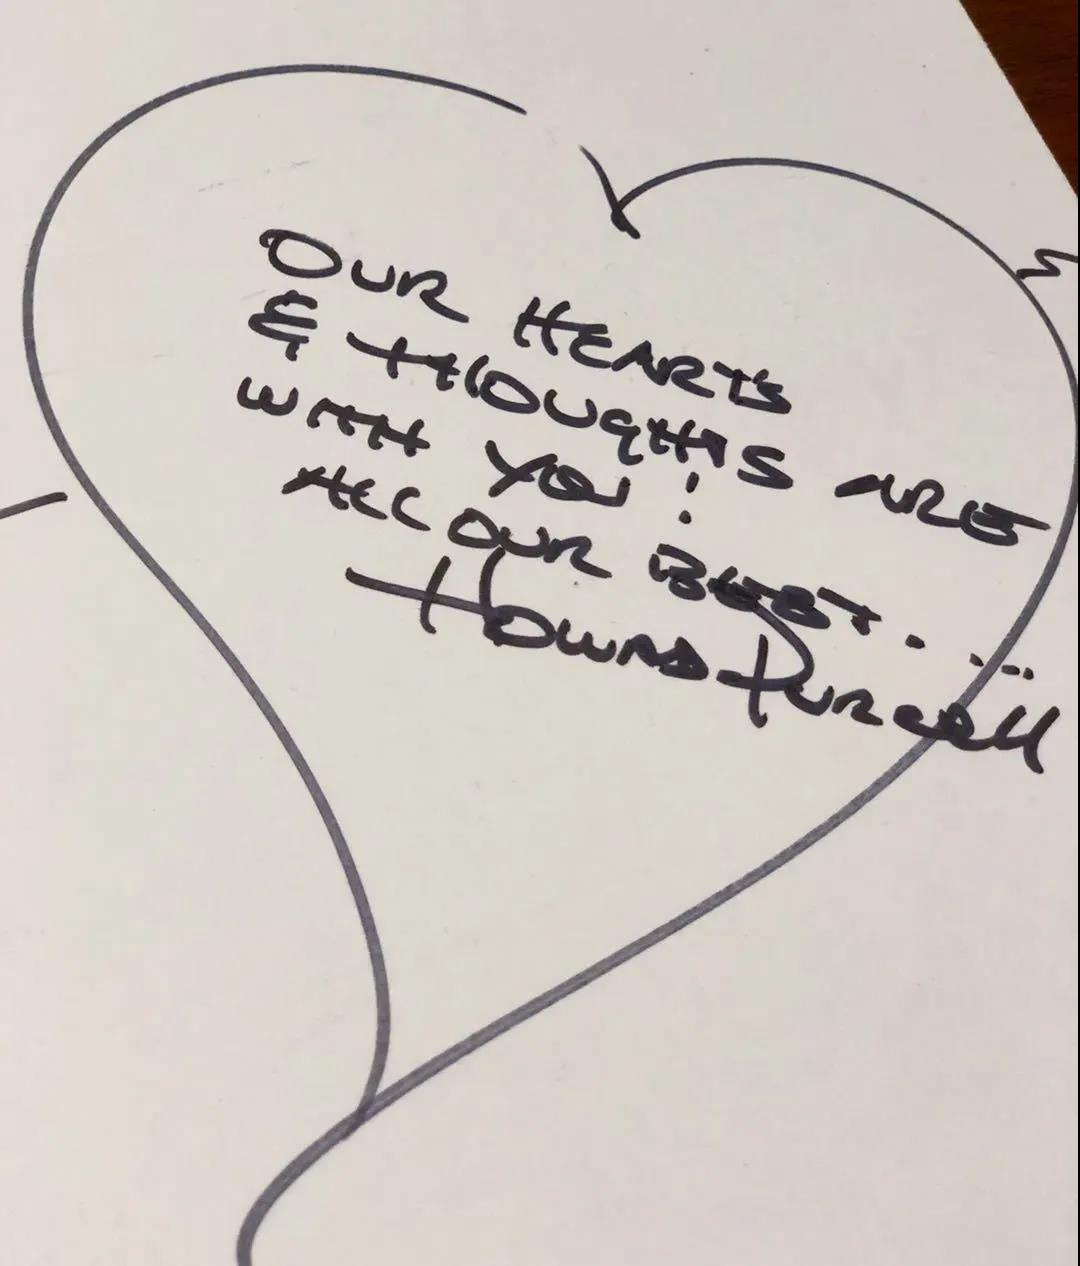 OUR HEARTS
& THOUGHTS ARE
WITH YOU!
ALL OUR BEST.....
Howard Purcell